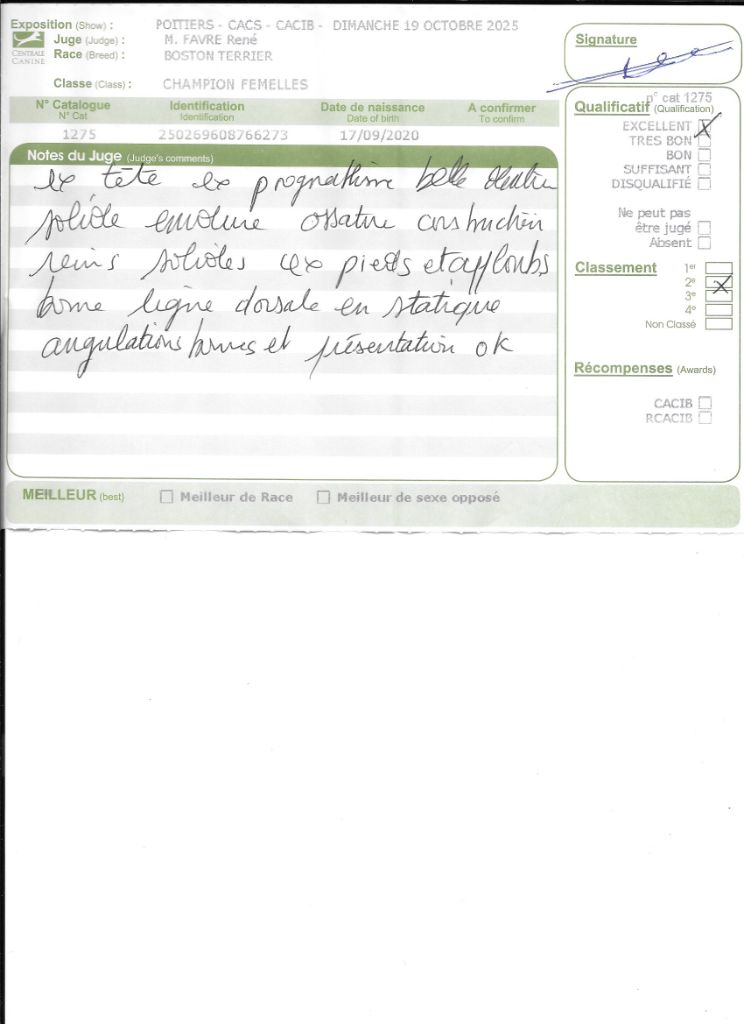 Exposition (Show) : POITIERS - CACS - CACIB - DIMANCHE 19 OCTOBRE 2025
Juge (Judge) : M. FAVRE René
Race (Breed) : BOSTON TERRIER
CENTRALE CANINE
Classe (Class) : CHAMPION FEMELLES
N° Catalogue Identification Date de naissance A confirmer
N° Cat Identification Date of birth To confirm
1275 250269608766273 17/09/2020
Notes du Juge (Judge's comments)
ex tête ex prognathisme belle
solide ossature construction
reins solides ex pieds et applombs
bonne ligne dorsale en statique
angulations bonnes et présentation ok
MEILLEUR (best) Meilleur de Race Meilleur de sexe opposé
Signature
n° cat 1275
Qualificatif (Qualification)
EXCELLENT
TRES BON
BON
SUFFISANT
DISQUALIFIÉ
Ne peut pas
être jugé
Absent
Classement 1er
2e
3e
4e
Non Classé
Récompenses (Awards)
CACIB
RCACIB